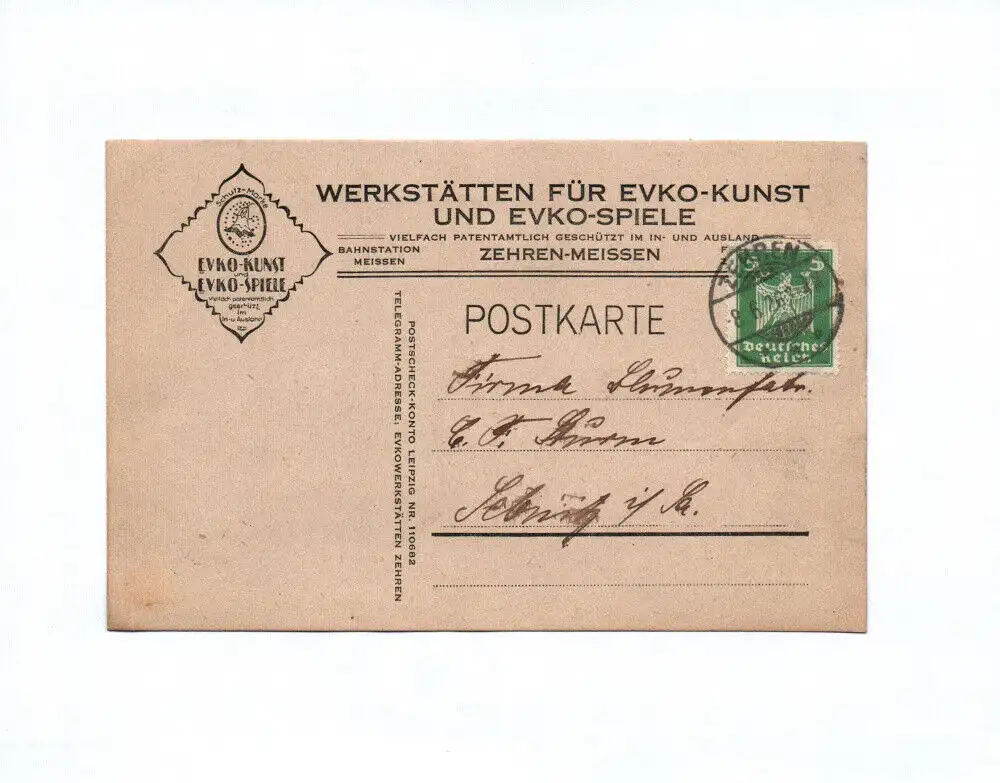 Schutz-Marke
EVKO-KUNST
und
EVKO-SPIELE
vielfach patentamtlich
geschützt
im
In- u. Ausland
WERKSTÄTTEN FÜR EVKO-KUNST
UND EVKO-SPIELE
VIELFACH PATENTAMTLICH GESCHÜTZT IM IN- UND AUSLAND
BAHNSTATION
MEISSEN
ZEHREN-MEISSEN
F
ZEHREN
5 5
Deutsches
Reich
POSTKARTE
POSTSCHECK-KONTO LEIPZIG NR. 110682
TELEGRAMM-ADRESSE: EVKOWERKSTÄTTEN ZEHREN
Firma Blumenfabr.
C. F. Sturm
Sebnitz i/Sa.